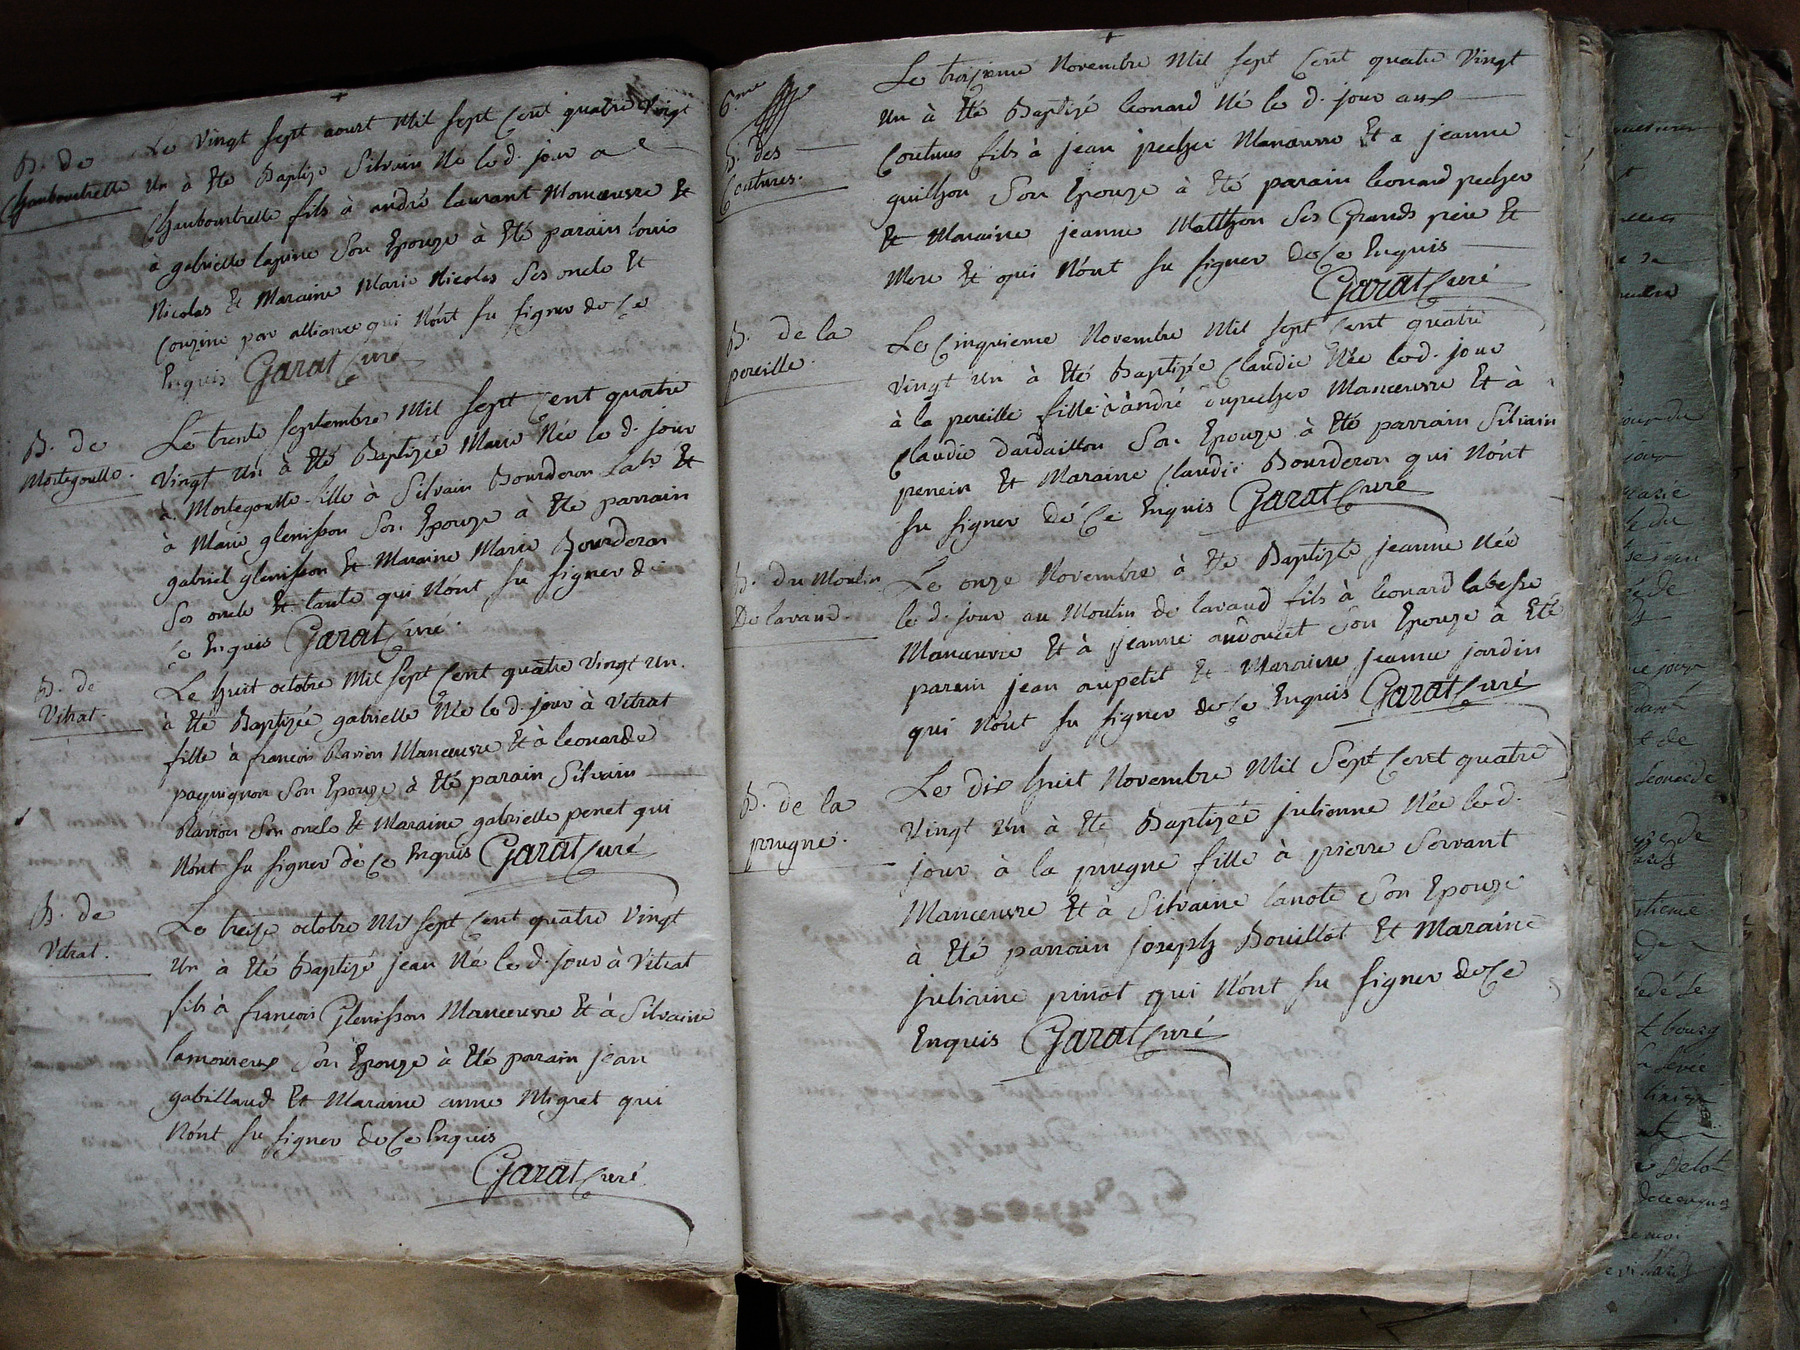 B. de
Chauboutrelle
Le vingt sept aoust Mil sept Cent quatre vingt
un à Eté Baptizé Silvain Né le d. jour a
Chauboutrelle fils à andré laurant Manœuvre Et
à gabrielle lapine Son Epouze à Eté parain louis
Nicolas Et Maraine Marie Nicolas Ses oncle Et
Couzine par alliance qui N'ont su signer de Ce
Enquis Garat Curé
B. de
Mortegoutte.
Le trente septembre Mil sept Cent quatre
vingt un à Eté Baptizée Marie Née le d. jour
à Mortegoutte fille à Silvain Bourderon Lab Et
à Marie glenisson Son Epouze à Eté parrain
gabriel glenisson Et Maraine Marie Bourderon
Ses oncle Et tante qui N'ont su signer de
Ce Enquis Garat Curé.
B. de
Vitrat.
Le huit octobre Mil sept Cent quatre vingt un.
à Eté Baptizée gabrielle Née le d. jour à Vitrat
fille à françois Ravion Manœuvre Et à leonarde
paquignon Son Epouze à Eté parain Silvain
Ravion Son oncle Et Maraine gabrielle penet qui
N'ont su signer de Ce Enquis Garat Curé
B. de
Vitrat.
Le treize octobre Mil sept Cent quatre vingt
un à Eté Baptizé jean Né le d. jour à Vitrat
fils à françois Glenisson Manœuvre Et à Silvaine
lamoureux Son Epouze à Eté parain jean
gabillaud Et Maraine anne Migret qui
N'ont su signer de Ce Enquis
Garat Curé.
6.me
B. des
Coutures.
Le troisieme Novembre Mil sept Cent quatre vingt
un à Eté Baptizé leonard Né le d. jour aux
Coutures fils à jean pecher Manœuvre Et a jeanne
guilhon Son Epouze à Eté parain leonard pecher
Et Maraine jeanne Matthon Ses Grands pere Et
Mere Et qui N'ont su signer de Ce Enquis
Garat Curé
B. de la
pereille.
Le Cinquieme Novembre Mil sept Cent quatre
vingt un à Eté Baptizée Claudie Née le d. jour
à la pereille fille à andré dupecher Manœuvre Et à
Claudie dardaillon Son Epouze à Eté parrain Silvain
penein Et Maraine Claudie Bourderon qui N'ont
su signer de Ce Enquis Garat Curé
B. du Moulin
De lavaud.
Le onze Novembre à Eté Baptizée jeanne Née
le d. jour au Moulin de lavaud fils à leonard labesse
Manœuvre Et à jeanne audoucet Son Epouze à Eté
parain jean aupetit Et Maraine jeanne jardin
qui N'ont su signer de Ce Enquis Garat Curé
B. de la
prugne.
Le dix huit Novembre Mil Sept Cent quatre
vingt un à Eté Baptizée julienne Née le d.
jour à la prugne fille à pierre Servant
Manœuvre Et à Silvaine lanote Son Epouze
à Eté parrain joseph Bouillot Et Maraine
julienne pinot qui N'ont su signer de Ce
Enquis Garat Curé